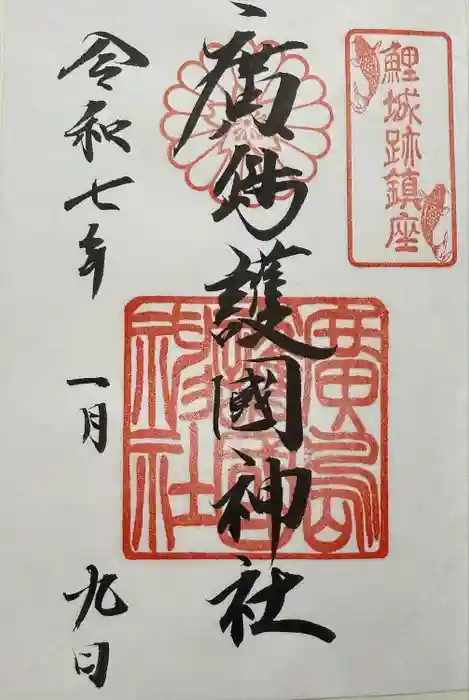 鯉城跡鎮座
廣島護國神社
廣島
護國
神社
令和七年
一月
九日